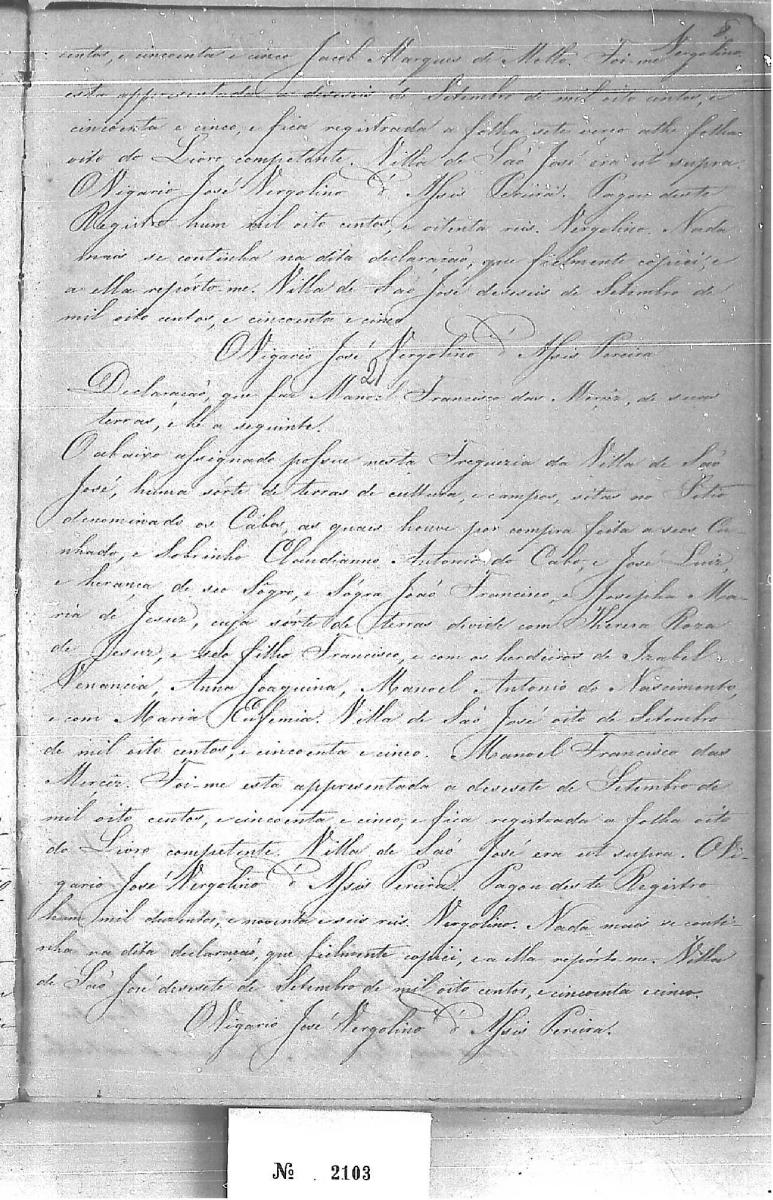 8
Vergolino
centos, e cincoenta e cinco Jacob Marques de Mello. Foi-me
esta appresentada a deseseis de Setembro de mil oito centos, e
cincoenta e cinco, e fica registrada a folha sete verso athe folha
oito do Livro competente. Villa de Saõ José era ut supra.
O Vigario José Vergolino d'Assis Pereira. Pagou deste
Registro hum mil oito centos, e oitenta reis. Vergolino. Nada
mais se continha na dita declaracaõ, que fielmente copiei, e
a ella repórto-me. Villa de Saõ José deseseis de Setembro de
mil oito centos, e cincoenta e cinco
O Vigario José Vergolino d'Assis Pereira
21
Declaracaõ, que faz Mano.el Francisco das Mercêz, de suas
terras, e hé a seguinte.
O abaixo assignado possue nesta Freguezia da Villa de Saõ
José, huma sórte de terras de cultura, e campos, sitas no Sitio
denominado os Cabos, as quais houve por compra feita a seos Cu-
nhado, e Sobrinho Claudianno Antonio do Cabo, e José Luiz,
e herança de seo Sôgro, e Sógra Joaõ Francisco, e Josepha Ma-
ria de Jesuz, cuja sórte de terras divide com Thereza Roza
de Jesuz, e seo filho Francisco, e com os herdeiros de Izabel
Venancia, Anna Joaquina, Manoel Antonio do Nascimento,
e com Maria Eufemia. Villa de Saõ José oito de Setembro
de mil oito centos, e cincoenta e cinco. Manoel Francisco das
Mercêz. Foi-me esta appresentada a desesete de Setembro de
mil oito centos, e cincoenta e cinco, e fica registrada a folha oito
do Livro competente. Villa de Saõ José era ut supra. O Vi-
gario José Vergolino d'Assis Pereira. Pagou deste Registro
hum mil duzentos, e noventa e seis reis. Vergolino. Nada mais se conti-
nha na dita declaraçaõ, que fielmente copiei, e a ella repórto-me. Villa
de Saõ José desesete de Setembro de mil oito centos, e cincoenta e cinco.
O Vigario José Vergolino d'Assis Pereira.
Nº 2103